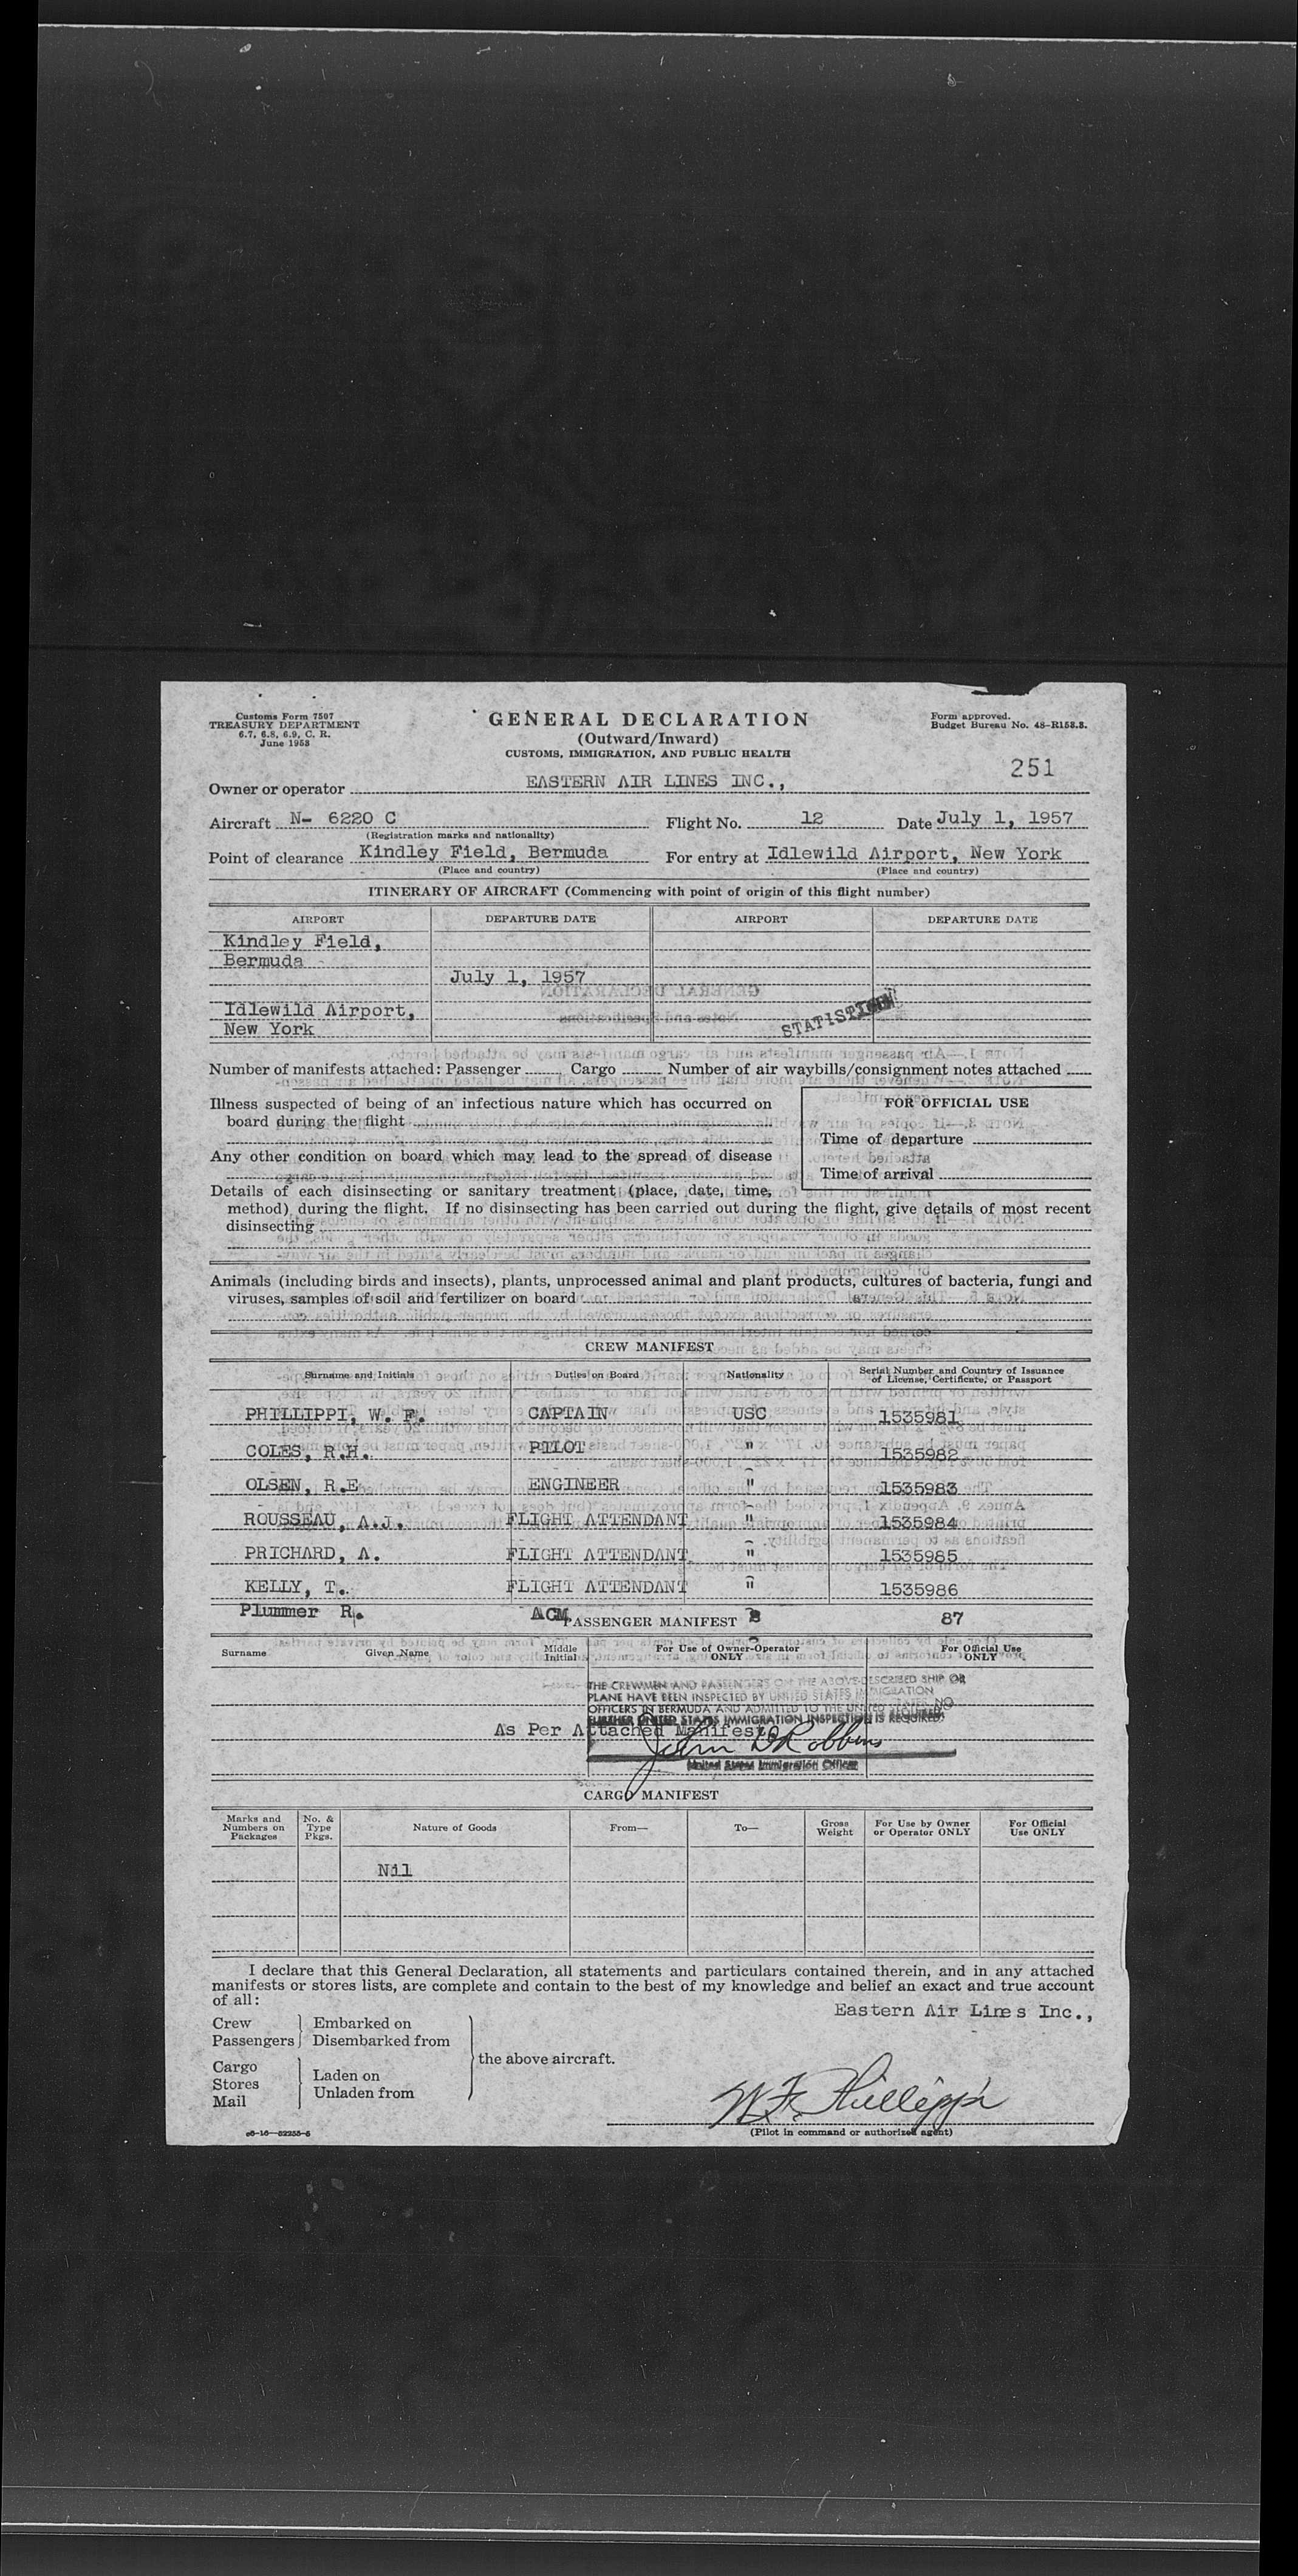 Customs Form 7507
TREASURY DEPARTMENT
6.7, 6.8, 6.9, C. R.
June 1953
GENERAL DECLARATION
(Outward/Inward)
CUSTOMS, IMMIGRATION, AND PUBLIC HEALTH
Form approved.
Budget Bureau No. 48-R153.3.
251
Owner or operator EASTERN AIR LINES INC.,
Aircraft N- 6220 C Flight No. 12 Date July 1, 1957
(Registration marks and nationality)
Point of clearance Kindley Field, Bermuda For entry at Idlewild Airport, New York
(Place and country) (Place and country)
ITINERARY OF AIRCRAFT (Commencing with point of origin of this flight number)
AIRPORT DEPARTURE DATE AIRPORT DEPARTURE DATE
Kindley Field,
Bermuda
July 1, 1957
Idlewild Airport,
New York
Number of manifests attached: Passenger Cargo Number of air waybills/consignment notes attached
Illness suspected of being of an infectious nature which has occurred on
board during the flight
Any other condition on board which may lead to the spread of disease
FOR OFFICIAL USE
Time of departure
Time of arrival
Details of each disinsecting or sanitary treatment (place, date, time,
method) during the flight. If no disinsecting has been carried out during the flight, give details of most recent
disinsecting
Animals (including birds and insects), plants, unprocessed animal and plant products, cultures of bacteria, fungi and
viruses, samples of soil and fertilizer on board
CREW MANIFEST
Surname and Initials Duties on Board Nationality Serial Number and Country of Issuance
of License, Certificate, or Passport
PHILLIPPI, W. F. CAPTAIN USC 1535981
COLES, R.H. PILOT " 1535982
OLSEN, R.E ENGINEER " 1535983
ROUSSEAU, A.J. FLIGHT ATTENDANT " 1535984
PRICHARD, A. FLIGHT ATTENDANT " 1535985
KELLY, T. FLIGHT ATTENDANT " 1535986
Plummer R. ACM 87
PASSENGER MANIFEST
Surname Given Name Middle Initial For Use of Owner-Operator ONLY For Official Use ONLY
THE CREWMEN AND PASSENGERS ON THE ABOVE-DESCRIBED SHIP OR
PLANE HAVE BEEN INSPECTED BY UNITED STATES IMMIGRATION
OFFICERS IN BERMUDA AND ADMITTED TO THE UNITED STATES. NO
FURTHER UNITED STATES IMMIGRATION INSPECTION IS REQUIRED.
As Per Attached Manifest
John D Robbins
United States Immigration Officer
CARGO MANIFEST
Marks and Numbers on Packages No. & Type Pkgs. Nature of Goods From— To— Gross Weight For Use by Owner or Operator ONLY For Official Use ONLY
Nil
I declare that this General Declaration, all statements and particulars contained therein, and in any attached
manifests or stores lists, are complete and contain to the best of my knowledge and belief an exact and true account
of all:
Eastern Air Lines Inc.,
Crew Embarked on
Passengers Disembarked from
the above aircraft.
Cargo
Stores Laden on
Mail Unladen from
W.F. Phillippi
(Pilot in command or authorized agent)